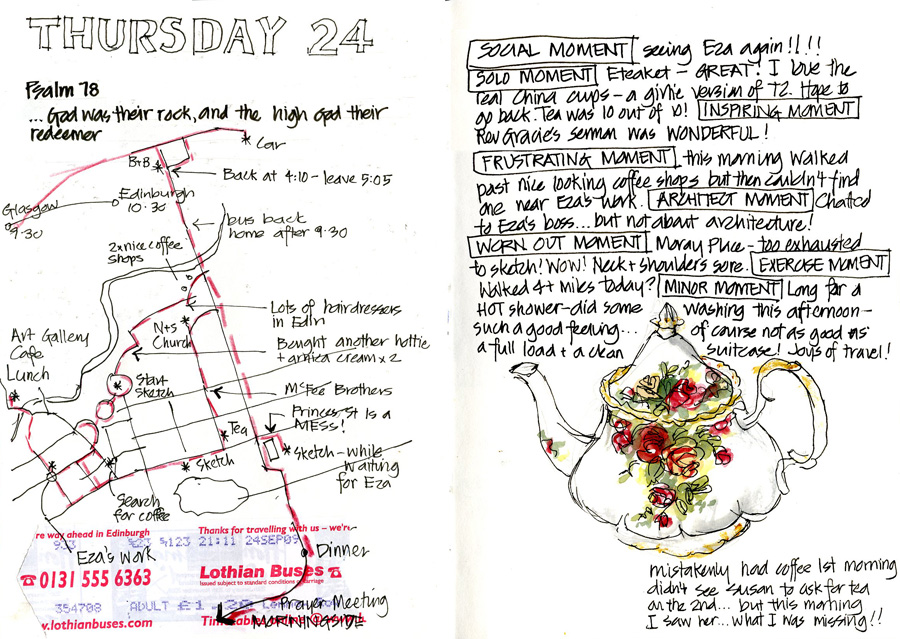 THURSDAY 24
Psalm 78
...God was their rock, and the high God their
redeemer
Car
B+B
Back at 4:10 - leave 5:05
Glasgow
9:30
Edinburgh
10.30
bus back
home after 9.30
2x nice coffee
shops
Lots of hairdressers
in Edin
N+S
Church
Bought another hottie
+ arnica cream x 2
Art Gallery
Cafe
Lunch
Start
Sketch
McFee Brothers
Princes St Is a
MESS!
Tea
Sketch
Sketch - while
waiting
for Eza
Search
for coffee
re way ahead in Edinburgh
Thanks for travelling with us – we're
933 523 5123 21:11 24SEP09
Eza's Work
Dinner
0131 555 6363
Lothian Buses
Issued subject to standard conditions of carriage
354708 ADULT £1.20
Prayer Meeting
w.lothianbuses.com
MORNINGSIDE
SOCIAL MOMENT seeing Eza again!!!!
SOLO MOMENT Eteaket - GREAT! I love the
real China cups - a girlie version of T2. Hope to
go back. Tea was 10 out of 10! INSPIRING MOMENT
Rev Gracie's sermon was WONDERFUL!
FRUSTRATING MOMENT this morning Walked
past nice looking coffee shops but then couldn't find
one near Eza's work. ARCHITECT MOMENT Chatted
to Eza's boss... but not about architecture!
WORN OUT MOMENT Moray Place - too exhausted
to sketch! WOW! Neck + shoulders sore. EXERCISE MOMENT
Walked 4+ miles today? MINOR MOMENT Long for a
HOT shower - did some Washing this afternoon -
such a good feeling... of course not as good as
a full load + a clean suitcase! Joys of travel!
mistakenly had coffee 1st morning
didn't see Susan to ask for tea
on the 2nd... but this morning
I saw her... what I was missing!!